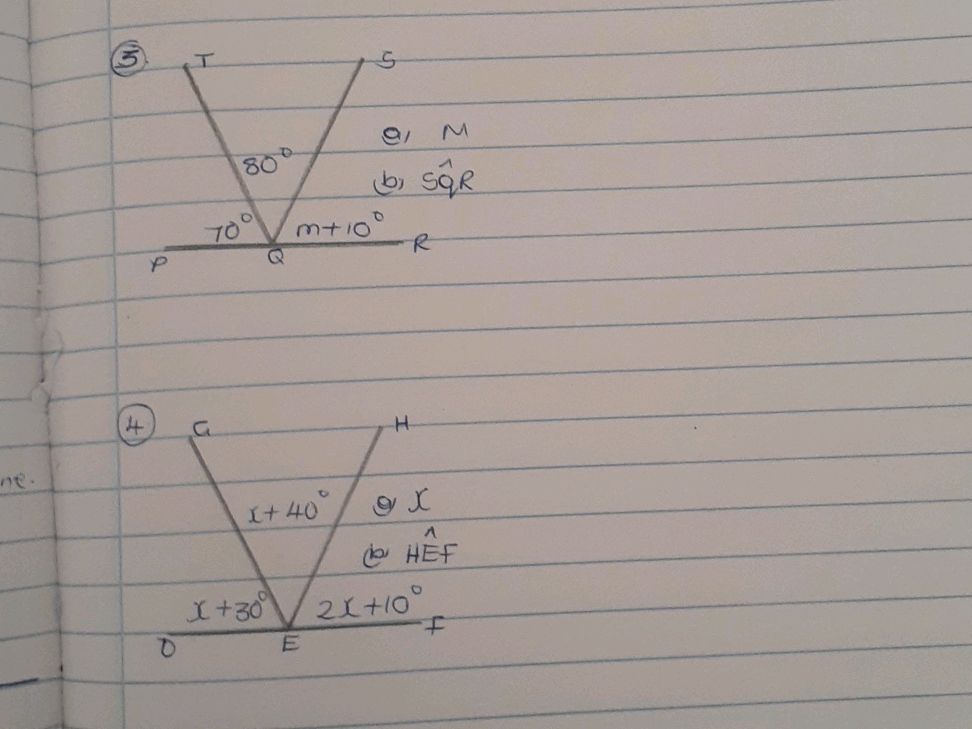 ③ T S
a, M
80°
(b, SQ̂R
70° m+10°
P Q R
④ G H
x+40° a, X
(b, HÊF
x+30° 2x+10°
D E F
ne.